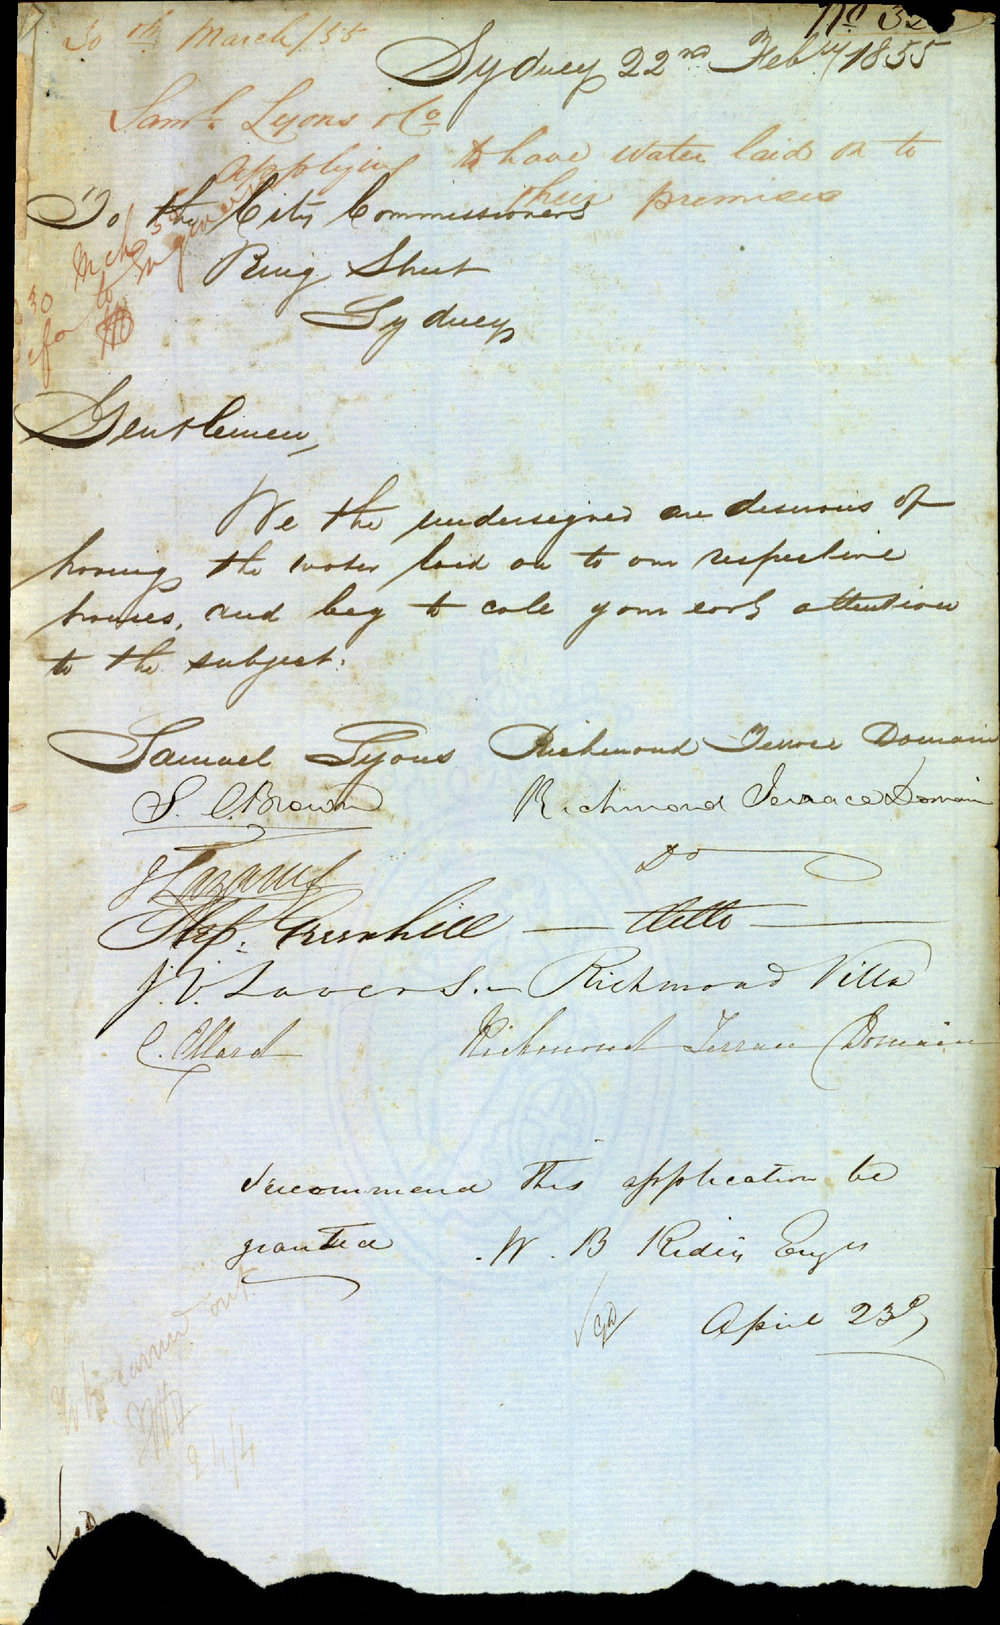 No 32
30th March/55
Sydney 22nd Feby 1855
Saml. Lyons & Co
applying to have water laid on to
their premises
To the City Commissioners
King Street
Sydney
30 Mch 55
for to Engineer
Gentlemen,
We the undersigned are desirous of
having the water laid on to our respective
houses, and beg to call your early attention
to the subject.
Samuel Lyons Richmond Terrace Domain
S. C. Brown Richmond Terrace Domain
J Lazarus Do
Step. Greenhill — ditto —
J. V. Lavers. — Richmond Villa
C. Ellard Richmond Terrace Domain
I recommend this application be
granted W. B Rider Engr
April 23d
To be carried out.
24/4